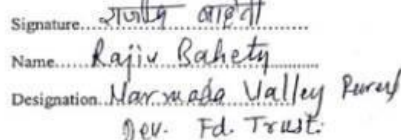 Signature..... राजीव बाहेती
Name..... Rajiv Bahety
Designation. Narmada Valley Rural
Dev. Fd. Trust.